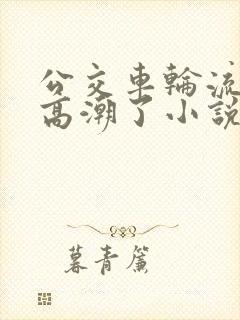 公交车輪流
高潮了小說
暮青簾